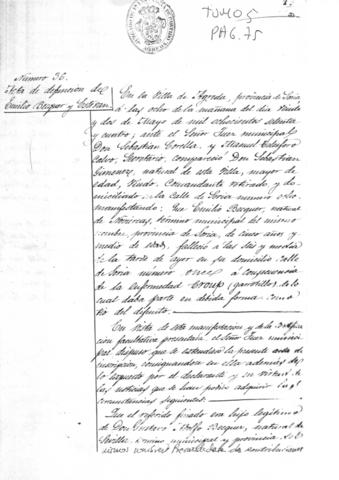 TOMO 5
PAG. 75
Número 56.
Acta de defuncion de
Emilio Becquer y Esteban
En la Villa de Agreda, provincia de Soria
á las ocho de la mañana del dia Veinte
y dos de Mayo de mil ochocientos setenta
y cuatro, ante el Señor Juez municipal
Don Sebastian Corella y Manuel
Calvo, Secretario, compareció Don Sebastian
Gimenez, natural de esta Villa, mayor de
edad, Viudo, Comandante retirado y do-
miciliado la calle de Soria numero ocho
manifestando: Que Emilio Becquer, natural
de termino municipal del mismo
nombre, provincia de Soria, de cinco años y
medio de edad, falleció a las seis y media
de la tarde de ayer en su domicilio calle
de Soria numero once á consecuencia
de la enfermedad Croup (garrotillo) de lo
cual daba parte en debida forma como
tio del difunto.
En Vista de esta manifestacion y de la certifica-
cion facultativa presentada, el Señor Juez munici-
pal dispuso que se estendiese la presente acta de
inscripcion, consignandose en ella ademas de
lo espuesto por el declarante y en virtud de
las noticias que se han podido adquirir las
circunstancias siguientes:
Que el referido finado era hijo legitimo
de Don Gustavo Adolfo Becquer, natural de
Sevilla, termino municipal y provincia de